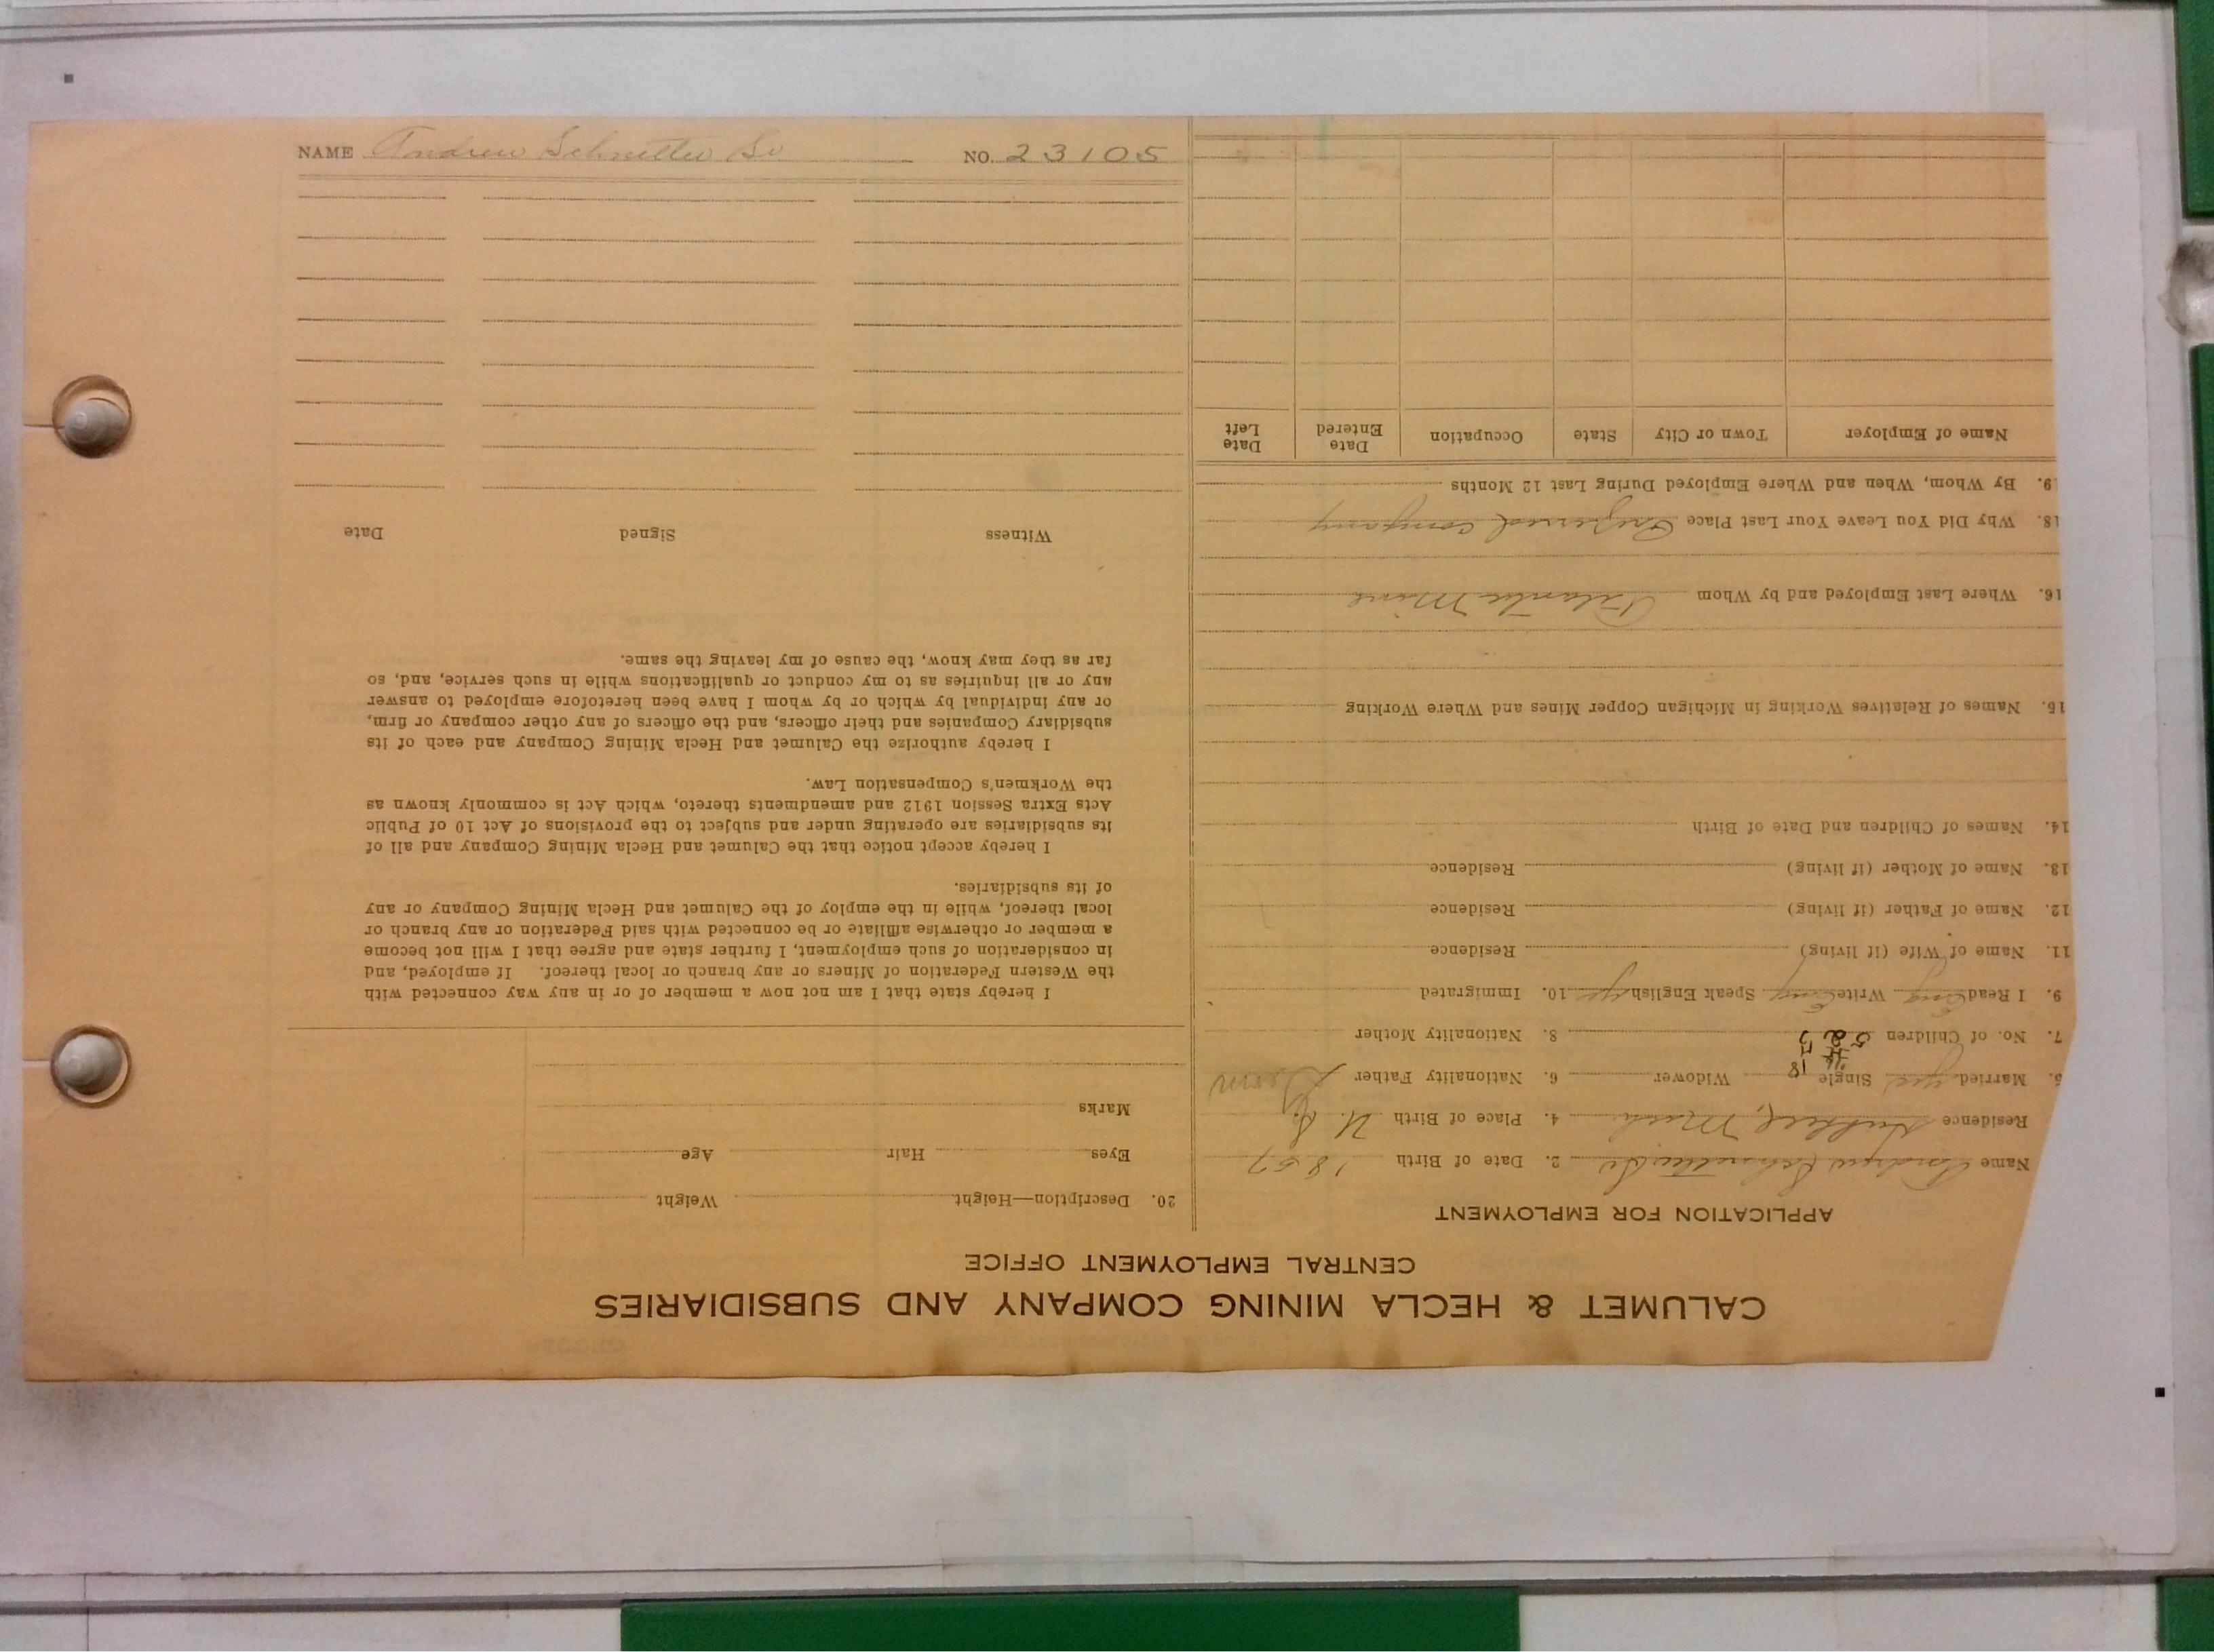 CALUMET & HECLA MINING COMPANY AND SUBSIDIARIES
CENTRAL EMPLOYMENT OFFICE
APPLICATION FOR EMPLOYMENT
Name Andrew Schnetter Sr 2. Date of Birth 1857
Residence Hubbell, Mich 4. Place of Birth U. S.
5. Married yes Single Widower 6. Nationality Father Germ
7. No. of Children 5 8. Nationality Mother
9. I Read Eng Write Eng Speak English yes 10. Immigrated
11. Name of Wife (if living) Residence
12. Name of Father (if living) Residence
13. Name of Mother (if living) Residence
14. Names of Children and Date of Birth
15. Names of Relatives Working in Michigan Copper Mines and Where Working
16. Where Last Employed and by Whom Atlantic Mine
18. Why Did You Leave Your Last Place Preferred company
19. By Whom, When and Where Employed During Last 12 Months
Name of Employer Town or City State Occupation Date Entered Date Left
20. Description—Height Weight
Eyes Hair Age
Marks
I hereby state that I am not now a member of or in any way connected with
the Western Federation of Miners or any branch or local thereof. If employed, and
in consideration of such employment, I further state and agree that I will not become
a member or otherwise affiliate or be connected with said Federation or any branch or
local thereof, while in the employ of the Calumet and Hecla Mining Company or any
of its subsidiaries.
I hereby accept notice that the Calumet and Hecla Mining Company and all of
its subsidiaries are operating under and subject to the provisions of Act 10 of Public
Acts Extra Session 1912 and amendments thereto, which Act is commonly known as
the Workmen's Compensation Law.
I hereby authorize the Calumet and Hecla Mining Company and each of its
subsidiary Companies and their officers, and the officers of any other company or firm,
or any individual by which or by whom I have been heretofore employed to answer
any or all inquiries as to my conduct or qualifications while in such service, and, so
far as they may know, the cause of my leaving the same.
Witness Signed Date
NAME Andrew Schnetter Sr NO. 23105